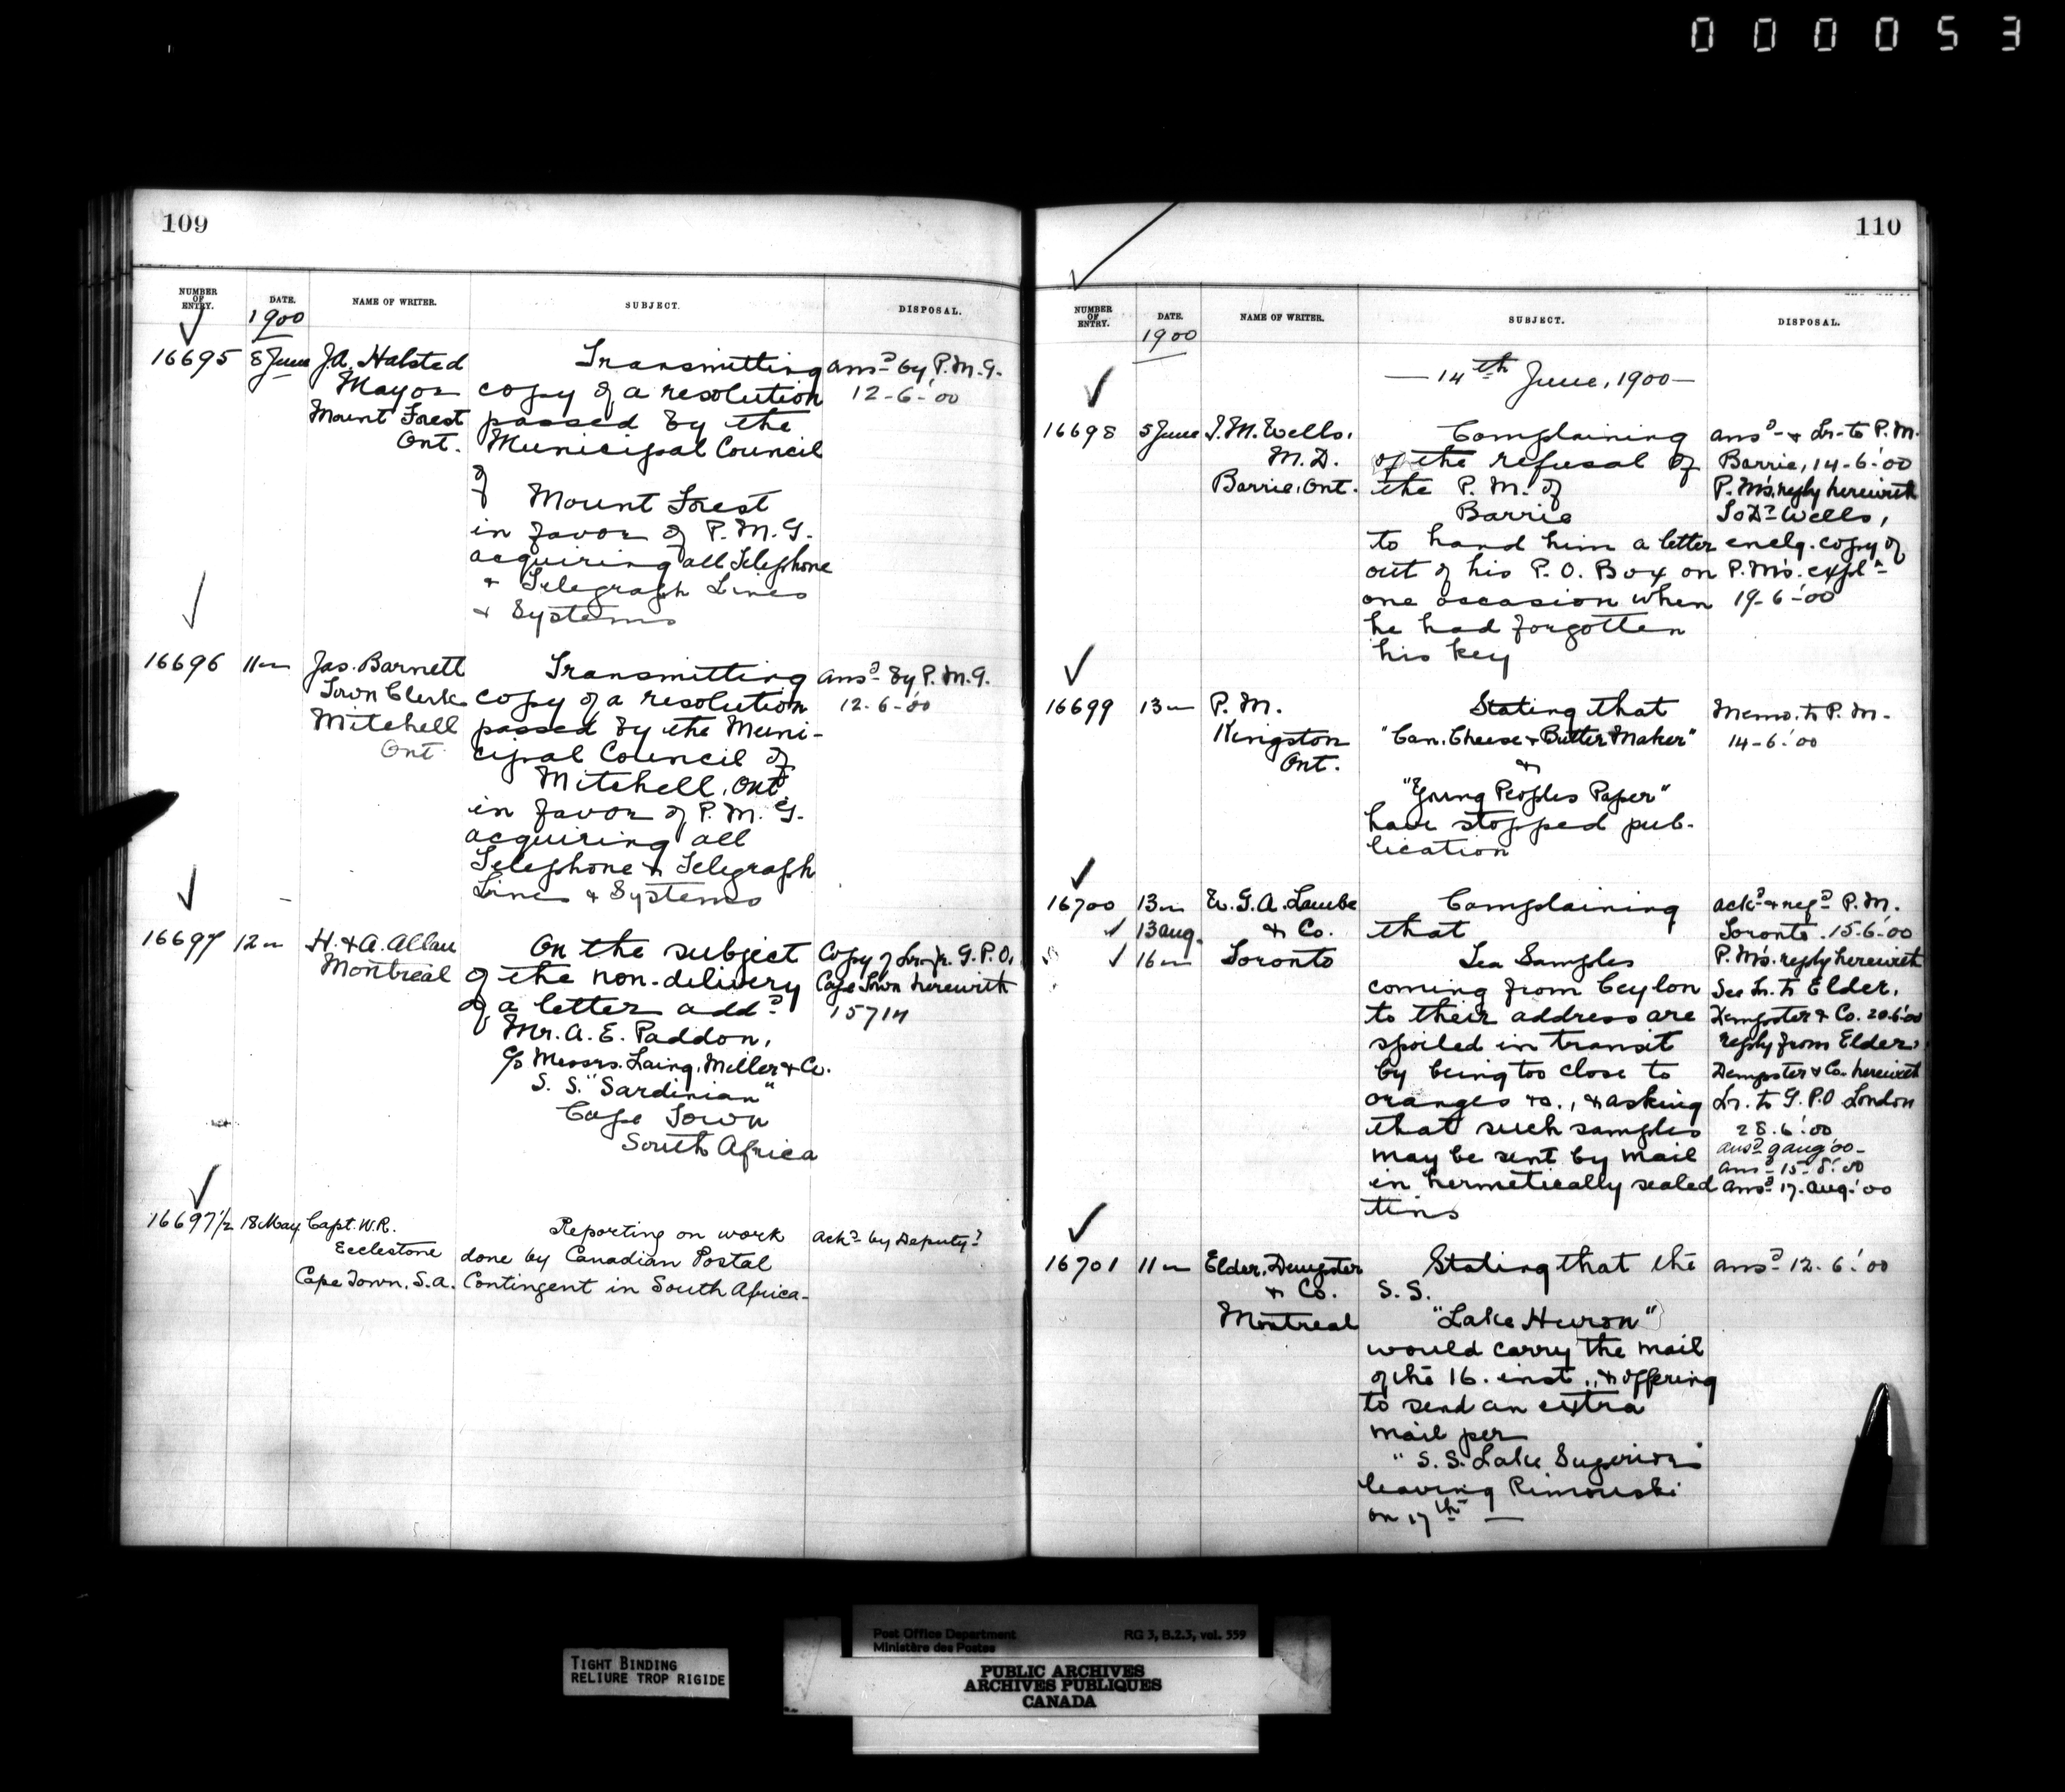 000053
109
NUMBER OF ENTRY. DATE. NAME OF WRITER. SUBJECT. DISPOSAL.
1900
16695 8 June J.A. Halsted Transmitting ansd by P.M.G.
Mayor copy of a resolution 12-6-'00
Mount Forest passed by the
Ont. Municipal Council
of
Mount Forest
in favor of P.M.G.
acquiring all Telephone
& Telegraph Lines
& Systems
16696 11 " Jas. Barnett Transmitting ansd by P.M.G.
Town Clerk copy of a resolution 12-6-'00
Mitchell passed by the Muni-
Ont cipal Council of
Mitchell, Ont.
in favor of P.M.G.
acquiring all
Telephone & Telegraph
Lines & Systems
16697 12 " H. & A. Allan On the subject Copy of Lr. fr. G.P.O.
Montreal of the non-delivery Cape Town herewith
of a letter addd 15714
Mr. A. E. Paddon,
c/o Messrs. Laing, Miller & Co.
S. S. "Sardinian"
Cape Town
South Africa
16697½ 18 May Capt. W.R. Reporting on work ackd by Deputy
Ecclestone done by Canadian Postal
Cape Town, S.A. Contingent in South Africa-
110
NUMBER OF ENTRY. DATE. NAME OF WRITER. SUBJECT. DISPOSAL.
1900
— 14th June, 1900 —
16698 5 June I.M. Wells, Complaining ansd & Lr. to P.M.
M.D. of the refusal of Barrie, 14-6-'00
Barrie, Ont. the P. M. of P.M's. reply herewith
Barrie To Dr Wells,
to hand him a letter enclg. copy of
out of his P. O. Box on P.M's. expln
one occasion when 19-6-'00
he had forgotten
his key
16699 13 " P. M. Stating that Memo. to P.M.
Kingston "Can. Cheese & Butter Maker" 14-6-'00
Ont. &
"Young Peoples Paper"
have stopped pub-
lication
16700 13 " E. G. A. Laube Complaining ackd & refd P.M.
13 aug. & Co. that Toronto. 15-6-'00
16 " Toronto Tea Samples P.M's. reply herewith
coming from Ceylon See Lr. to Elder,
to their address are Dempster & Co. 20-6-'00
spoiled in transit reply from Elder
by being too close to Dempster & Co. herewith
oranges &c., & asking Lr. to G.P.O London
that such samples 28.6.'00
may be sent by mail ansd 9 aug '00-
ansd 15-8-'00
in hermetically sealed ansd 17. aug. '00
tins
16701 11 " Elder, Dempster Stating that the ansd 12-6-'00
& Co. S.S.
Montreal "Lake Huron"
would carry the mail
of the 16. inst., & offering
to send an extra
mail per
"S.S. Lake Superior"
leaving Rimouski
on 17th —
Post Office Department RG 3, B.2.3, vol. 559
Ministère des Postes
TIGHT BINDING
RELIURE TROP RIGIDE
PUBLIC ARCHIVES
ARCHIVES PUBLIQUES
CANADA